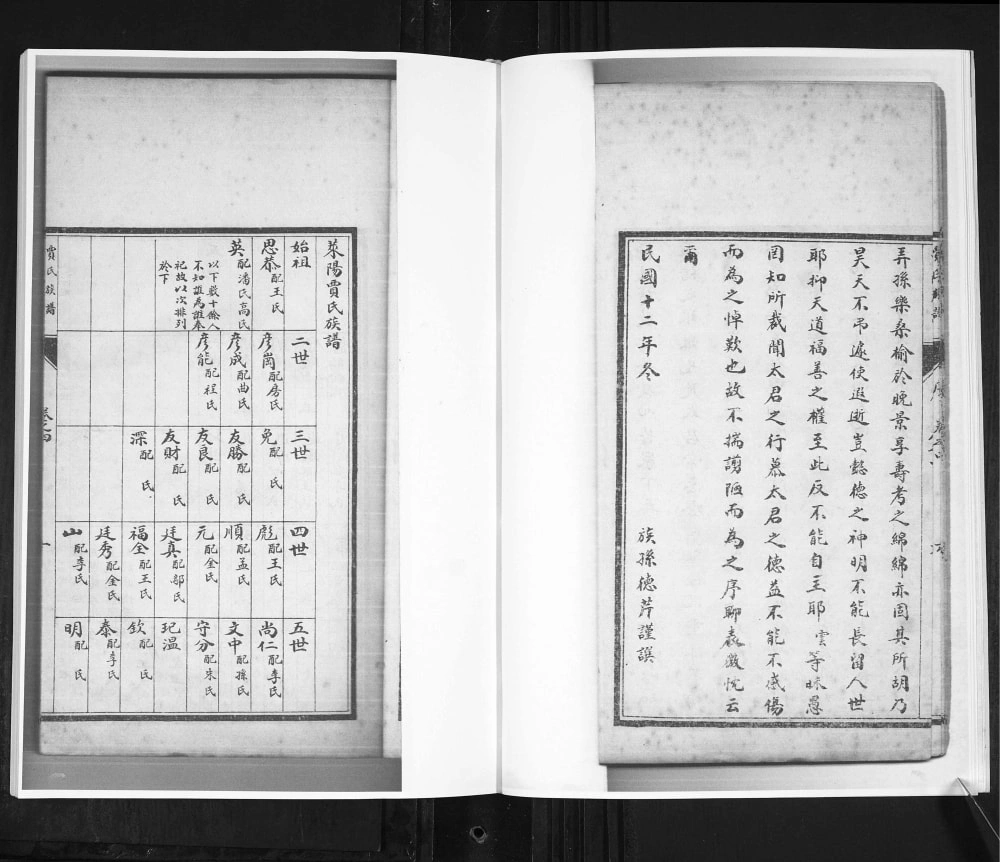 弄孫樂桑榆於晚景享壽考之綿綿亦固其所胡乃
昊天不弔遽使遐逝豈懿德之神明不能長留人世
耶抑天道福善之權至此反不能自主耶雲等昧愚
罔知所裁聞太君之行慕太君之德益不能不感傷
而為之悼歎也故不揣謭陋而為之序聊表微忱云
爾
民國十二年冬 族孫德芹謹譔
萊陽賈氏族譜
始祖 二世 三世 四世 五世
思恭配王氏 彥崗配房氏 免配 氏 彪配王氏 尚仁配李氏
英配潘氏高氏 彥成配曲氏 友勝配 氏 順配孟氏 文中配孫氏
以下數十餘人
不知誰為誰奉
祀故以次排列
於下
彥能配程氏 友良配 氏 元配金氏 守分配朱氏
友財配 氏 廷真配郚氏 玘溫
深配 氏 福全配王氏 欽配 氏
廷秀配金氏 泰配李氏
山配李氏 明配 氏
賈氏族譜 一